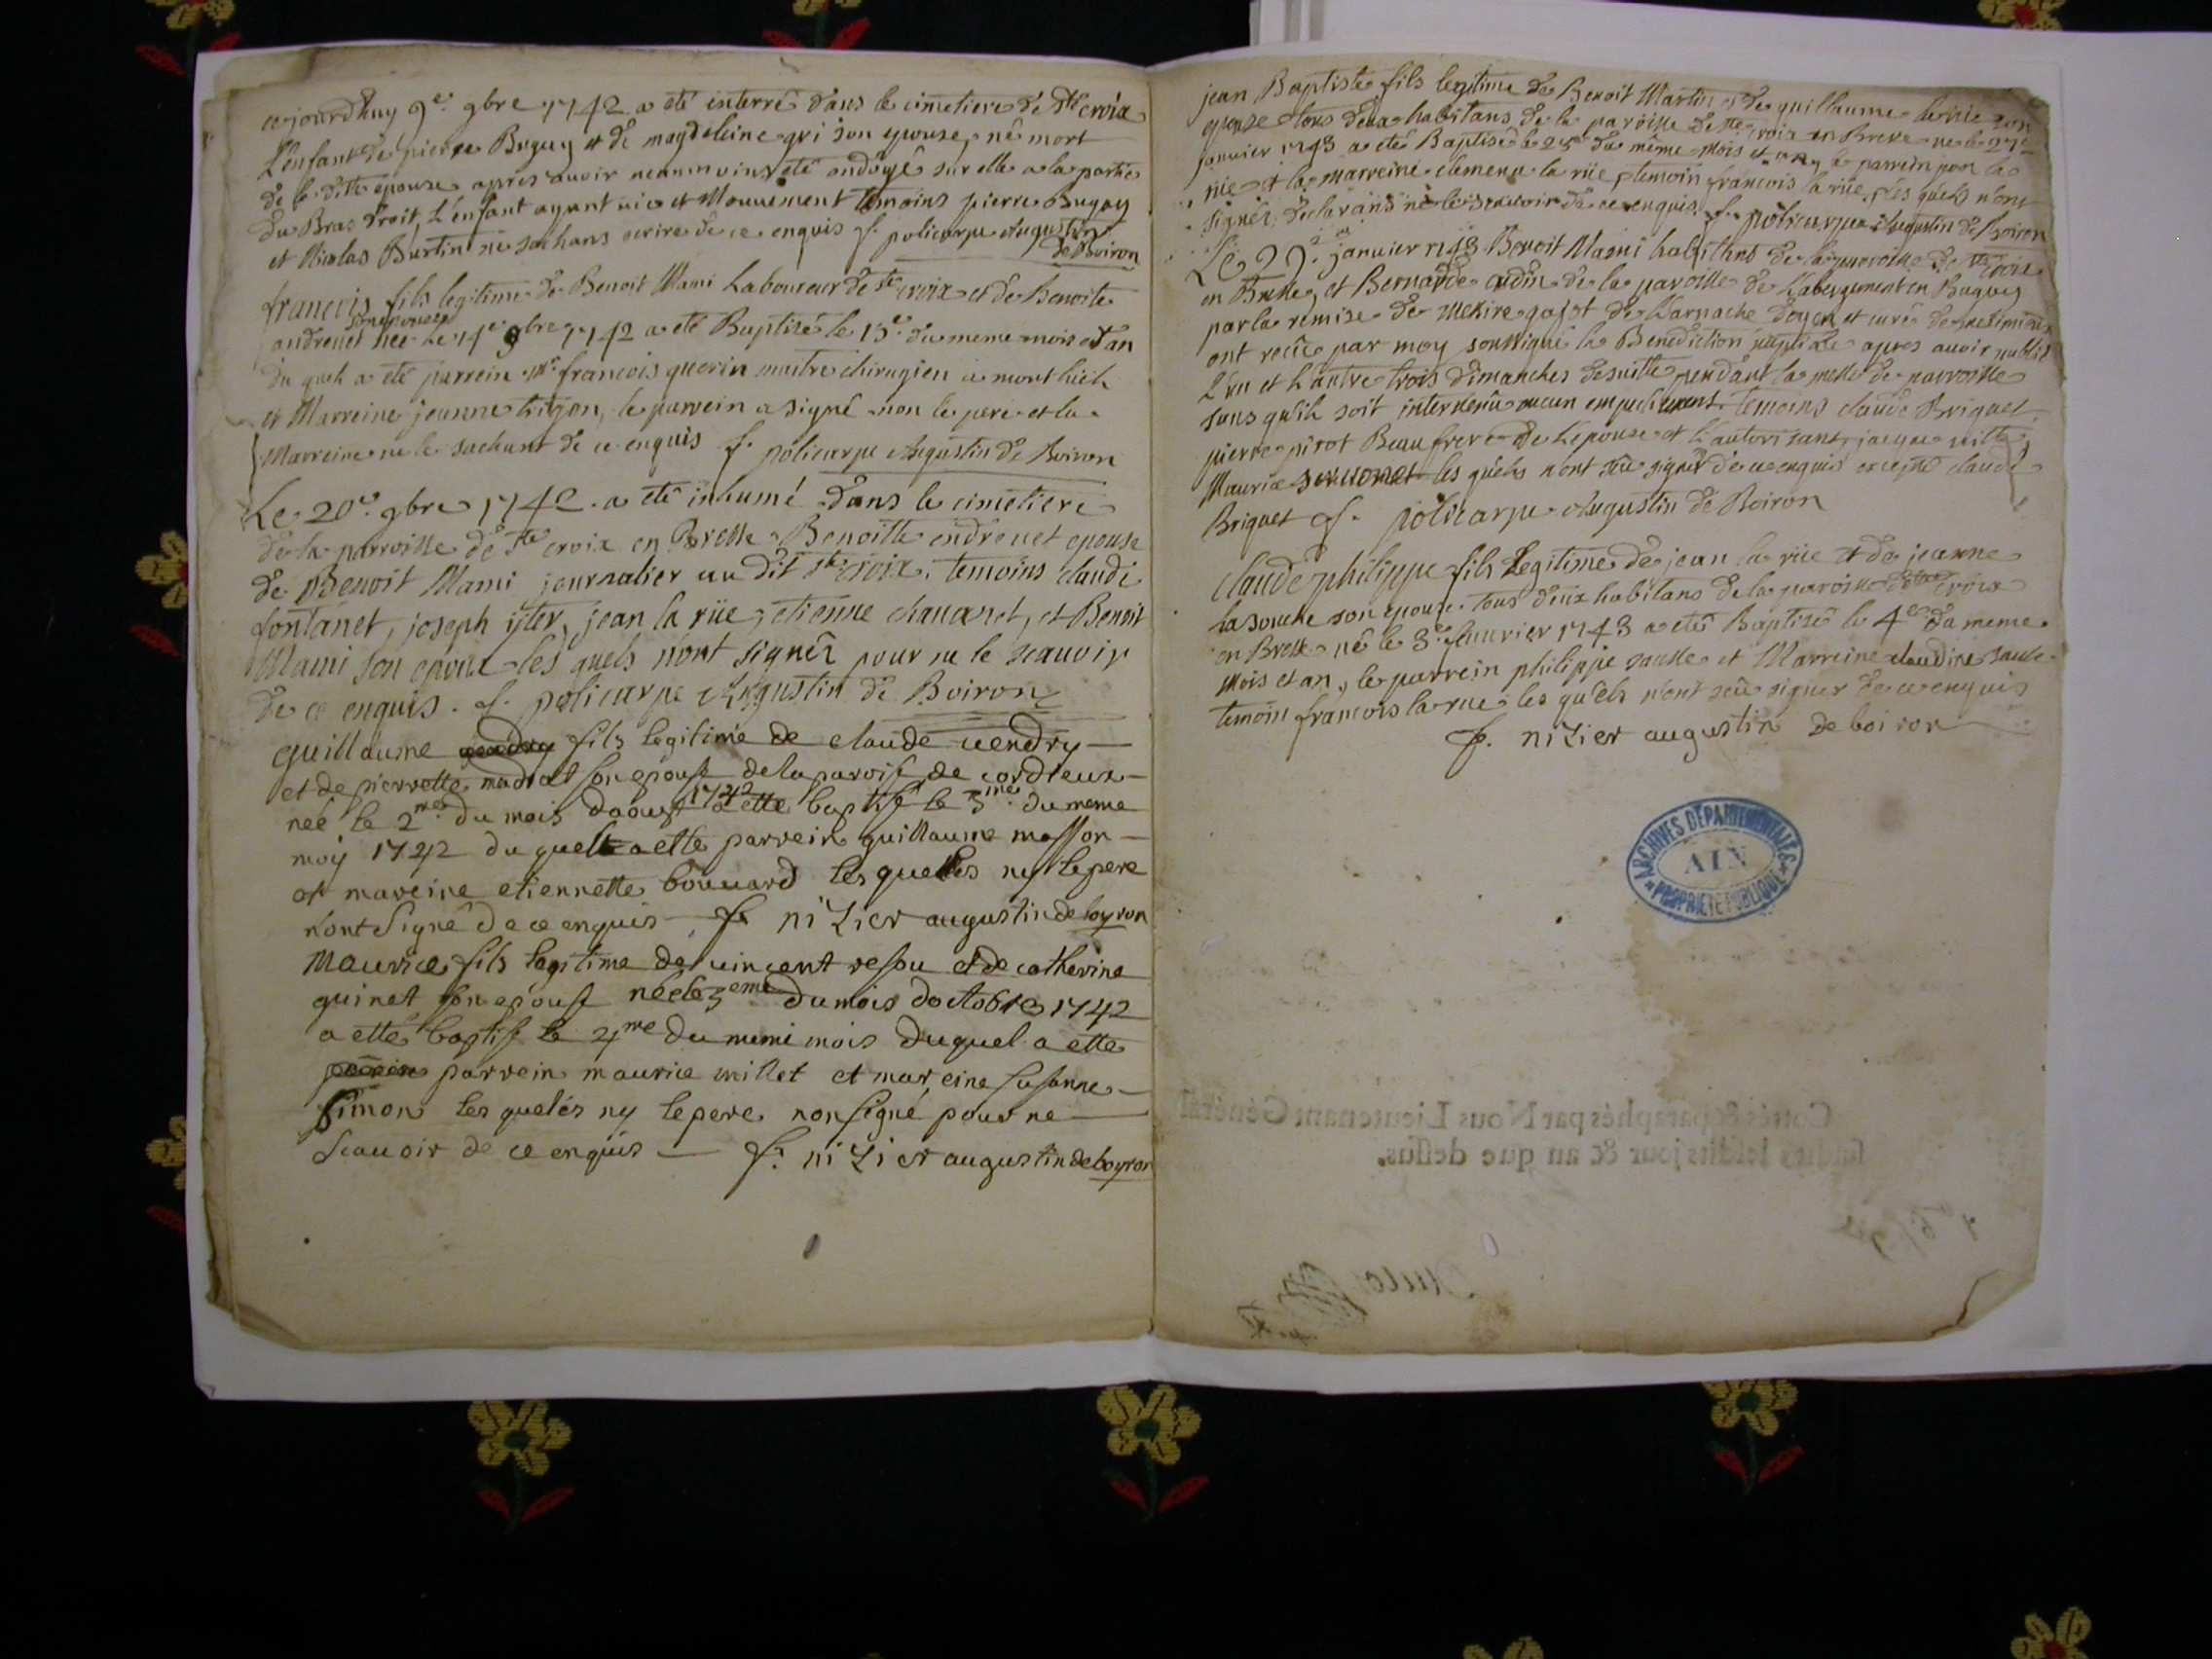 cejourdhuy 9e. 9bre 1742 a eté interré dans le cimetiere de Ste croix
L'enfant de pierre Buguy et de magdeleine gri son epouse, né mort
de la ditte epouse apres avoir neanmoins eté ondoyé sur elle a la partie
du Bras droit, L'enfant ayant vie et Mouvement temoins pierre Buguy
et Nicolas Burtin ne sachans ecrire de ce enquis f. policarpe Augustin
de Boiron
francois fils legitime de Benoit Mami Laboureur de ste croix et de Benoite
son epouse
andrenet née Le 14e 9bre 1742 a eté Baptisé le 15e. du meme mois et an
du quel a eté parrein Mr. francois guerin maitre chirugien a montluel
et Marreine jeanne trigon, le parrein a signé non le pere et la
Marreine ne le sachant de ce enquis f. policarpe Augustin de Boiron
Le 20e. 9bre 1742. a eté inhumé dans le cimetiere
de la parroisse de Ste croix en Bresse Benoitte endrenet epouse
de Benoit Mami journalier au dit ste croix. temoins claude
fontanet, joseph jter, jean la rüe, etienne chavanet, et Benoit
Mami son epoux les quels n'ont signér pour ne le scavoir
de ce enquis. f. policarpe Augustin de Boiron
guillaume fils legitime de claude vendry
et de pierrette madiat son epouse de la paroise de cordieux
neé le 2me du mois daoust 1742 a etté baptisé le 3me du meme
moy 1742 du quel a etté parrein guillaume masson
et mareine etiennette bouvard les quelles ny le pere
n'ont signé de ce enquis f. nizier augustin de boyron
Maurice fils legitime de vincent respu et de catherine
guinet son epouse né le 3eme du mois doctobre 1742
a etté baptisé le 4me du meme mois duquel a etté
parrein maurice millet et mareine susanne
simon les quelés ny le pere non signé pour ne
scavoir de ce enquis f. nizier augustin de boyron
jean Baptiste fils legitime de Benoit Martin et de guillaume la rüe son
epouse tous deux habitans de la paroisse de ste croix en Bresse né le 27e
janvier 1743 a eté Baptisé le 28e du même mois et an le parrein jean la
rüe et la marreine clemence la rüe, temoin francois la rüe, les quels n'ont
signér declarans ne le scavoir de ce enquis. f. policarpe Augustin de Boiron
Le 29e. janvier 1743 Benoit Mami habittant de la parroisse de ste croix
en Bresse, et Bernarde de la paroisse de L'abergement en Buguey
par la remise de Messire de Varnache doyen et curé de meximieux
ont recûe par moy soussigné la Benediction nuptiale apres avoir publié
L'un et L'autre trois dimanches desuitte pendant la messe de parroisse
sans qu'il soit intervenû aucun empechement. temoins claude Briquet
pierre pirot Beau frere de L'epouse et L'autorisant, jacque
Maurice les quels n'ont sçu signer de ce enquis excepté claude
Briquet f. policarpe Augustin de Boiron
claude philippe fils Legitime de jean la rüe et de jeanne
la souche son epouse. tous deux habitans de la paroisse de ste croix
en Bresse né le 3e. fevrier 1743 a eté Baptisé le 4e du meme
Mois et an, le parrein philippe et Marreine claudine
temoin francois la rue les quels n'ont scû signer de ce enquis
f. nizier augustin de boiron
ARCHIVES DÉPARTEMENTALES
AIN
PROPRIÉTÉ PUBLIQUE
Cottés & paraphés par Nous Lieutenant Général
susdit lesdits jour & an que dessus.